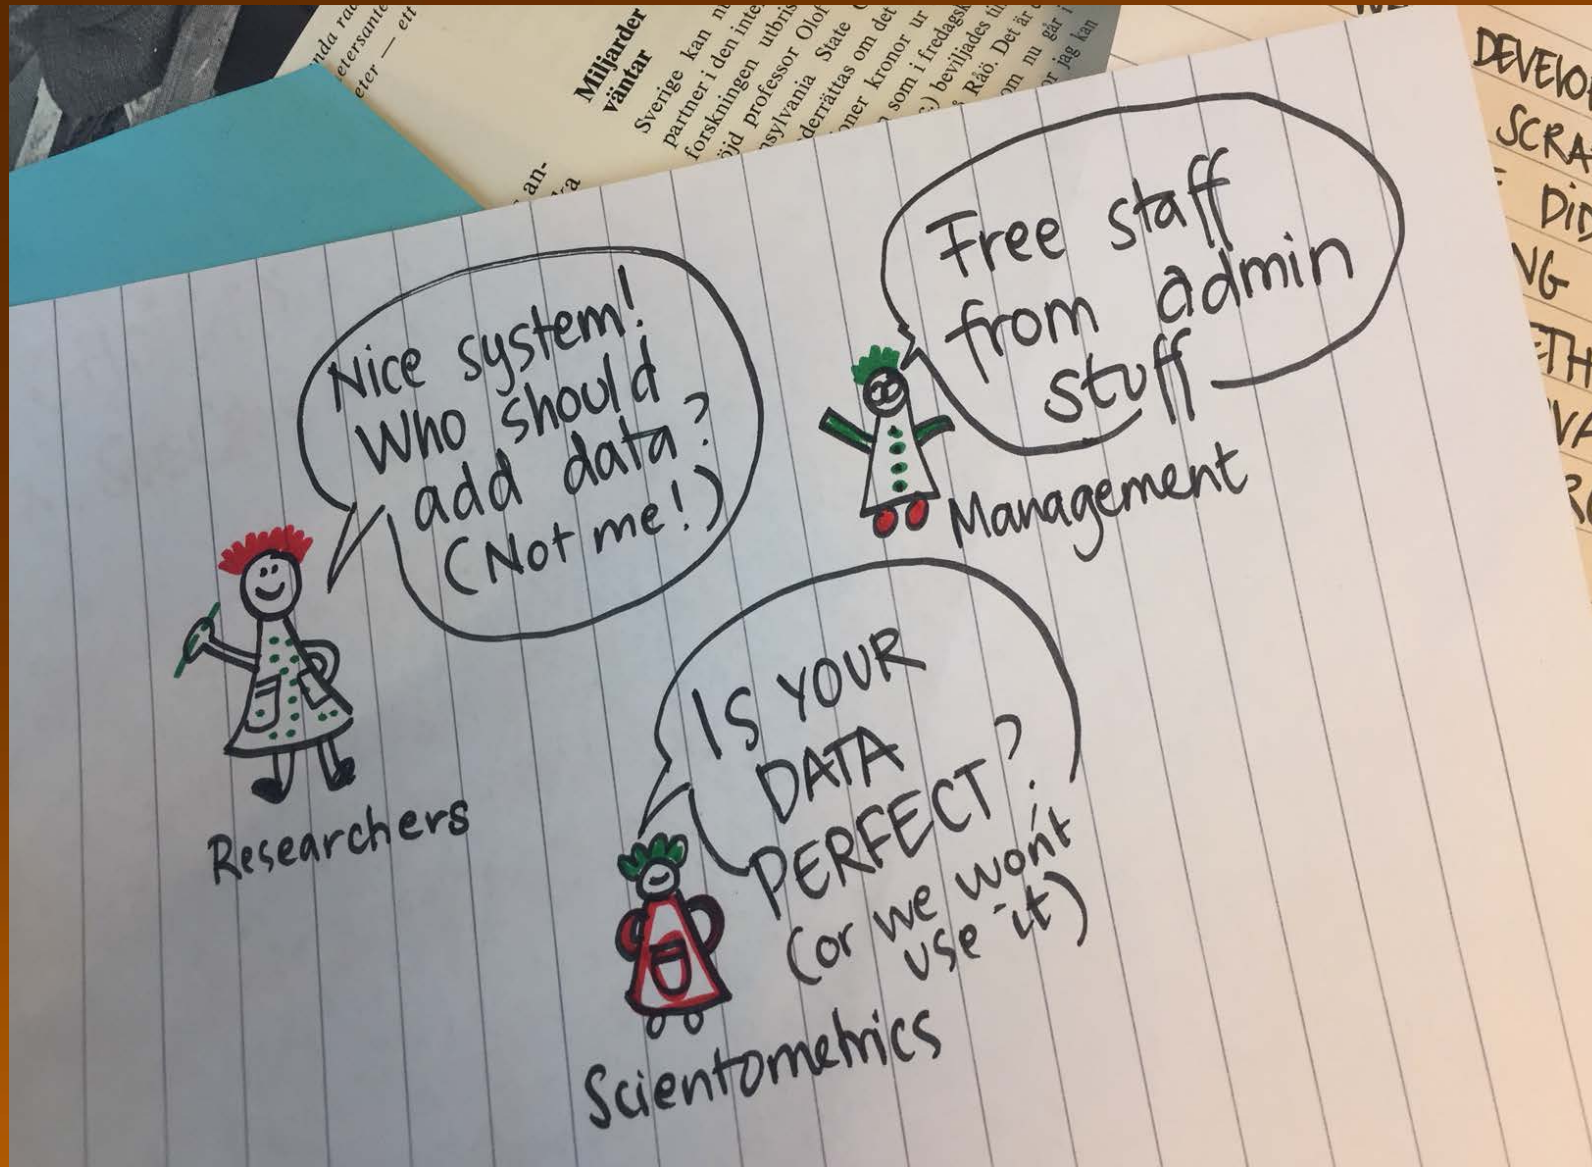 Miljarder
väntar
Sverige kan
partner i den
forskningen
professor Olof
State
som det
kronor ur
som i fredags
beviljades
Råö. Det är
om nu går i
jag kan
eter — ett
DEVELO
SCRA
DID
NG
Nice system!
Who should
add data?
(Not me!)
Researchers
Free staff
from admin
stuff
Management
IS YOUR
DATA
PERFECT?
(or we won't
use it)
Scientometrics